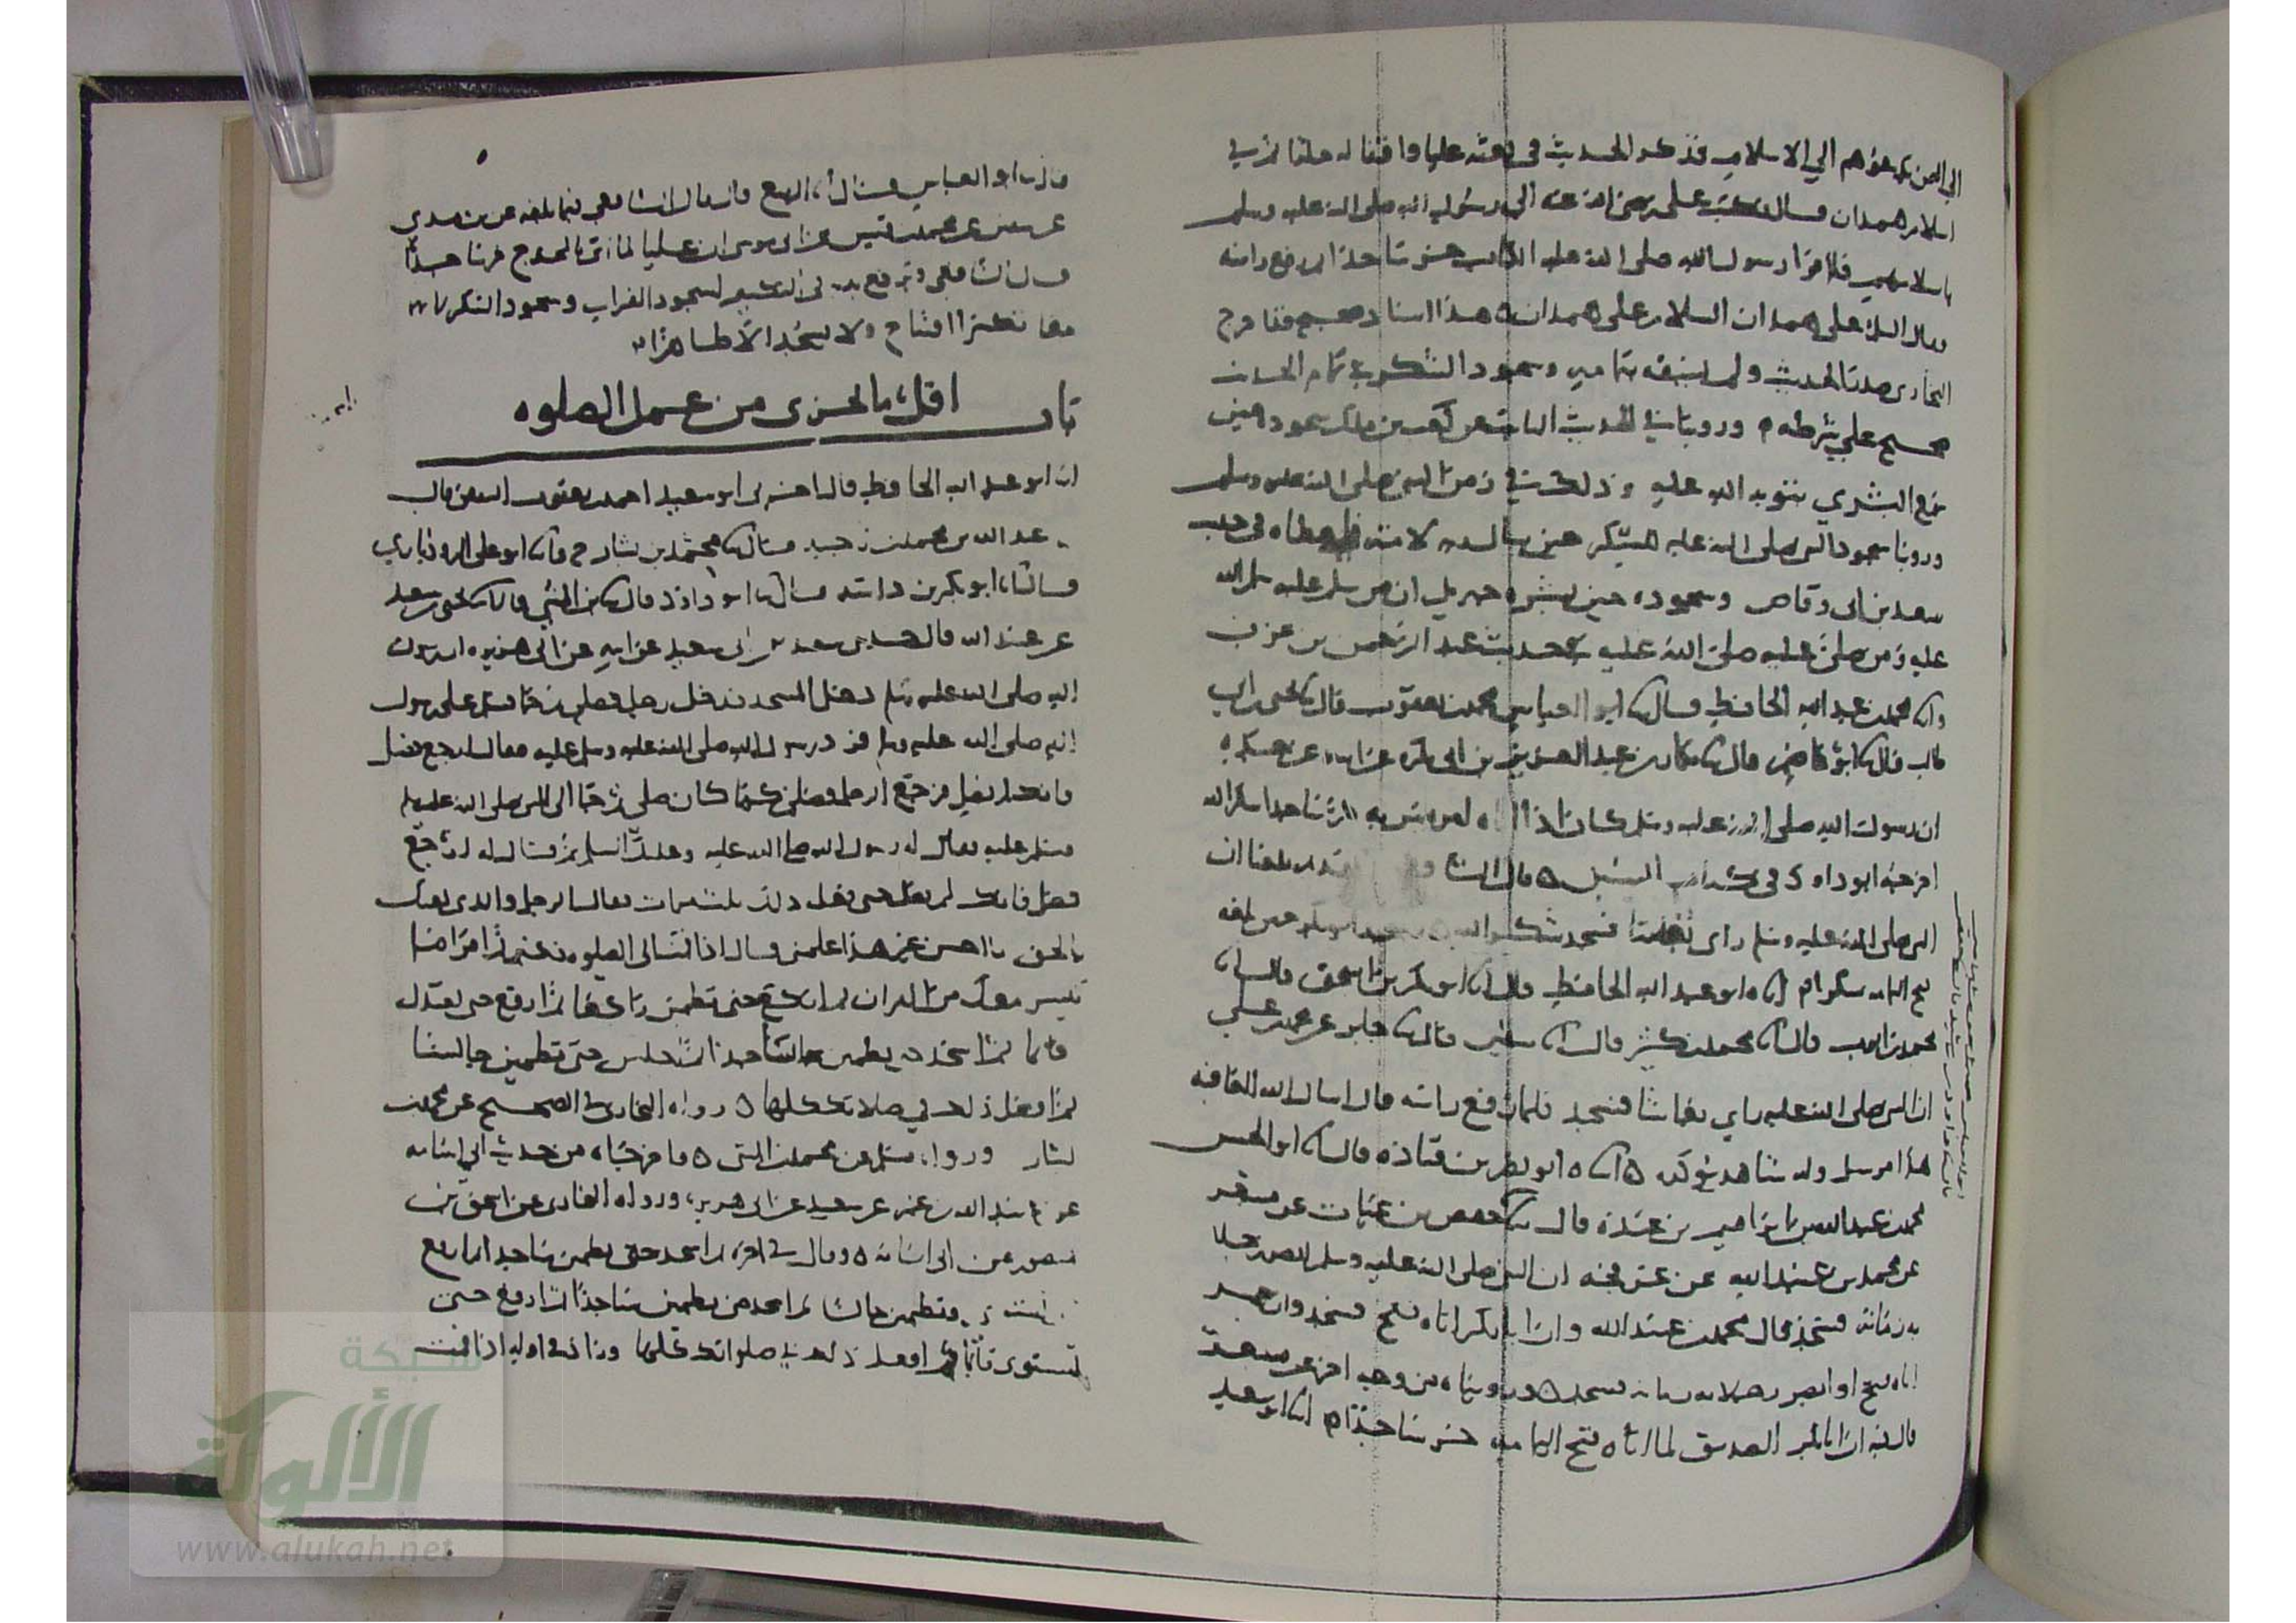 الي اليمن يدعوهم الي الاسلام فذكر الحديث في بعثه عليا واقفاله خالدا ثم في
اسلام همدان قال فكتب علي رضي الله عنه الي رسول الله صلى الله عليه وسلم
باسلامهم فلما قرا رسول الله صلى الله عليه الكتاب خر ساجدا ثم رفع راسه
فقال السلام على همدان السلام على همدان هذا اسناد صحيح فقد اخرج
البخاري صدر الحديث ولم يسقه بتمامه وسجود الشكر في تمام الحديث
صحيح علي شرطه وروينا في الحديث الثابت عن كعب بن ملك سجوده حين
سمع البشري بتوبة الله عليه وذلك في زمن النبي صلى الله عليه وسلم
وروينا سجود النبي صلى الله عليه للشكر حين سال ربه لامته فاعطاه في حديث
سعد بن ابي وقاص وسجوده حين بشره جبريل ان من سلم عليه سلم الله
عليه ومن صلى عليه صلى الله عليه في حديث عبد الرحمن بن عوف
وانا محمد بن عبد الله الحافظ قال انا ابو العباس محمد بن يعقوب قال نا يحيى بن ابي
طالب قال نا ابو عاصم قال نا بكار بن عبد العزيز بن ابي بكره عن ابيه عن ابي بكره
ان رسول الله صلى الله عليه وسلم كان اذا اتاه امر يسر به خر ساجدا شكرا لله
اخرجه ابو داود في كتاب السنن قال الشافعي وقد بلغنا ان
النبي صلى الله عليه وسلم راى نغاشا فسجد شكرا لله وسجد ابو بكر حين بلغه
فتح اليمامه شكرا انا ابو عبد الله الحافظ قال انا ابو بكر بن اسحق قال انا
محمد بن ايوب قال انا محمد بن كثير قال نا سفين قال نا جابر عن محمد بن علي
ان النبي صلى الله عليه راي نغاشا فسجد فلما رفع راسه قال اسال الله العافيه
هذا مرسل وله شاهد يؤكده انا ابو نصر بن قتاده قال انا ابو الحسن
محمد بن عبد الله بن ابراهيم بن عبده قال نا حفص بن غياث عن مسعر
عن محمد بن عبيد الله عن عرفجه ان النبي صلى الله عليه وسلم ابصر رجلا
به زمانه فسجد قال محمد بن عبيد الله وان ابا بكر اتاه فتح فسجد وان عمر
اتاه فتح او ابصر رجلا به زمانه فسجد وروينا من وجه اخر عن مسعر
قال فيه ان ابا بكر الصديق لما اتاه فتح اليمامه خر ساجدا انا ابو سعيد
قال نا ابو العباس قال انا الربيع قال قال الشافعي فيما بلغه عن بن مهدي
عن سفين عن محمد بن قيس عن ابي موسى ان عليا لما اتى بالمخدج خر ساجدا
قال الشافعي ويرفع يديه في التكبير لسجود القران وسجود الشكر لانهما
معا تكبير افتتاح ولا يسجد الا طاهرا
باب اقل ما يجزى من عمل الصلوه
انا ابو عبد الله الحافظ قال اخبرني ابو سعيد احمد بن يعقوب الثقفي قال
نا عبد الله بن محمد بن ناجيه قال نا محمد بن بشار ح وانا ابو علي الروذباري
قال انا ابو بكر بن داسه قال نا ابو داود قال نا بن المثني قال نا يحيى بن سعيد
عن عبيد الله قال حدثني سعيد بن ابي سعيد عن ابيه عن ابي هريره ان رسول
الله صلى الله عليه وسلم دخل المسجد فدخل رجل فصلى ثم جا فسلم على رسول
الله صلى الله عليه وسلم فرد رسول الله صلى الله عليه وسلم عليه فقال ارجع فصل
فانك لم تصل فرجع الرجل فصلى كما كان صلى ثم جا الى النبي صلى الله عليه وسلم
فسلم عليه فقال له رسول الله صلى الله عليه وعليك السلم ثم قال له ارجع
فصل فانك لم تصل حتى فعل ذلك ثلث مرات فقال الرجل والذي بعثك
بالحق ما احسن غير هذا علمني قال اذا قمت الى الصلوه فكبر ثم اقرا ما
تيسر معك من القران ثم اركع حتى تطمئن راكعا ثم ارفع حتى تعتدل
قائما ثم اسجد حتى تطمئن ساجدا ثم اجلس حتى تطمئن جالسا
ثم افعل ذلك في صلاتك كلها رواه البخاري في الصحيح عن محمد بن
بشار ورواه مسلم عن محمد بن المثنى واخرجاه من حديث ابي اسامه
عن عبيد الله بن عمر عن سعيد عن ابي هريره ورواه البخاري عن اسحق بن
منصور عن ابي اسامه وقال في اخره ثم اسجد حتى تطمئن ساجدا ثم ارفع
حتى تستوي وتطمئن جالسا ثم اسجد حتى تطمئن ساجدا ثم ارفع حتى
تستوى قائما ثم افعل ذلك في صلواتك كلها وزاد في اوله اذا قمت
شبكة
الألوكة
www.alukah.net